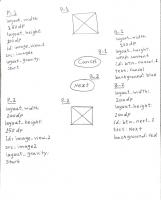 P-1
layout_width:
layout_height:
id: image_view_1
src: image1
layout_gravity:
start
P-1
B-1
layout_width:
layout_height:
wrap_content
id: btn_cancel_1
text: Cancel
background: blue
B-1
Cancel
B-2
Next
B-2
layout_width:
200dp
layout_height:
id: btn_next_2
text: Next
background: red
P-2
P-2
layout_width:
200dp
layout_height:
250dp
id: image_view_2
src: image2
layout_gravity:
start